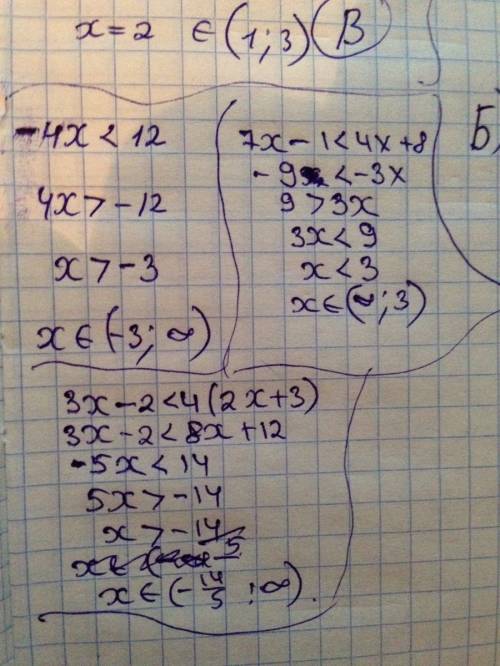 x = 2 ∈ (1; 3) В
-4x < 12
4x > -12
x > -3
x ∈ (-3; ∞)
7x - 1 < 4x + 8
-9 < -3x
9 > 3x
3x < 9
x < 3
x ∈ (-∞; 3)
Б)
3x - 2 < 4(2x + 3)
3x - 2 < 8x + 12
-5x < 14
5x > -14
x > -14/5
x ∈ (-14/5; ∞).